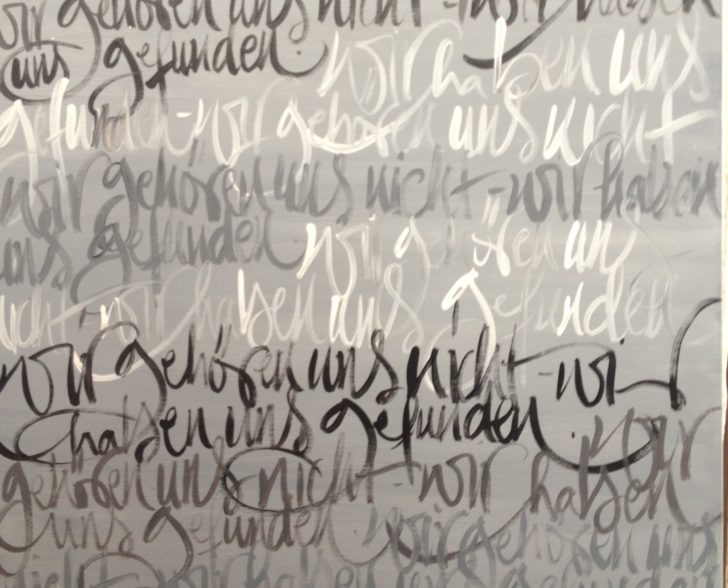 wir gehören uns nicht - wir haben
uns gefunden. wir haben uns
gefunden - wir gehören uns nicht
wir gehören uns nicht - wir haben
uns gefunden. wir gehören uns
nicht - wir haben uns gefunden
wir gehören uns nicht - wir
haben uns gefunden. wir
gehören uns nicht - wir haben
uns gefunden wir gehören uns
nicht - wir haben uns gefunden